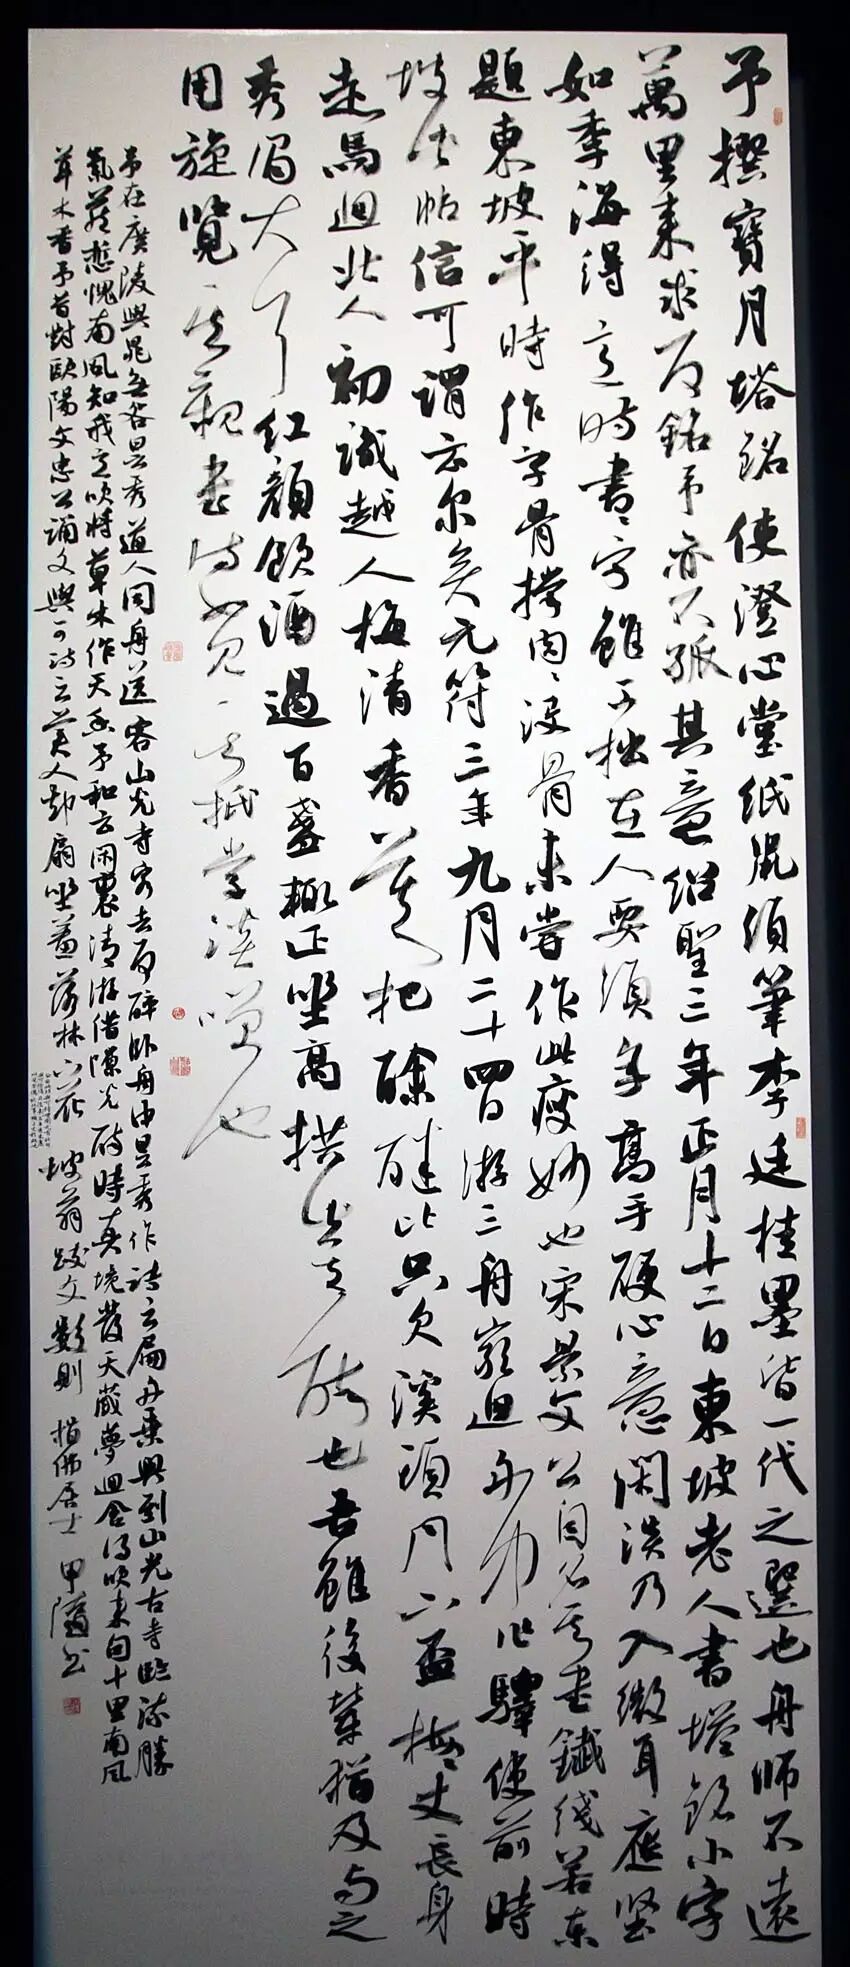 予撰寶月塔銘使澄心堂紙鼠須筆李廷珪墨皆一代之選也舟師不遠
萬里來求予銘予亦不孤其意紹聖三年正月十二日東坡老人書塔銘小字
如季海得意時書書字雖工拙在人要須年高手硬心意閑淡乃入微耳應堅
題東坡平時作字骨撐肉肉沒骨未嘗作此瘦妙也宋景文公自名其書鐵綫若東
坡此帖信可謂云尔矣元符三年九月二十四日游三舟巖迴
驛使前時
走馬迴北人初識越人梅清香莫把酴醾比只欠溪頭月下盃梅丈長身
秀眉大耳紅顏飲酒過百盞輒正坐高拱此其醉也吾雖後輩猶及與之
周旋覽其親書詩如見其抵掌談笑也
予在廣陵與晁无咎曇秀道人同舟送客山光寺客去予醉卧舟中曇秀作詩云扁舟乘興到山光古寺臨流勝
氣藏慙愧南風知我意吹將草木作天香予和云閑裏清游借隙光醉時真境發天藏夢迴拾得吹來句十里南風
草木香予昔對歐陽文忠公誦文與可詩云美人却扇坐羞落林下花 坡翁跋文數則 楷佛居士 甲